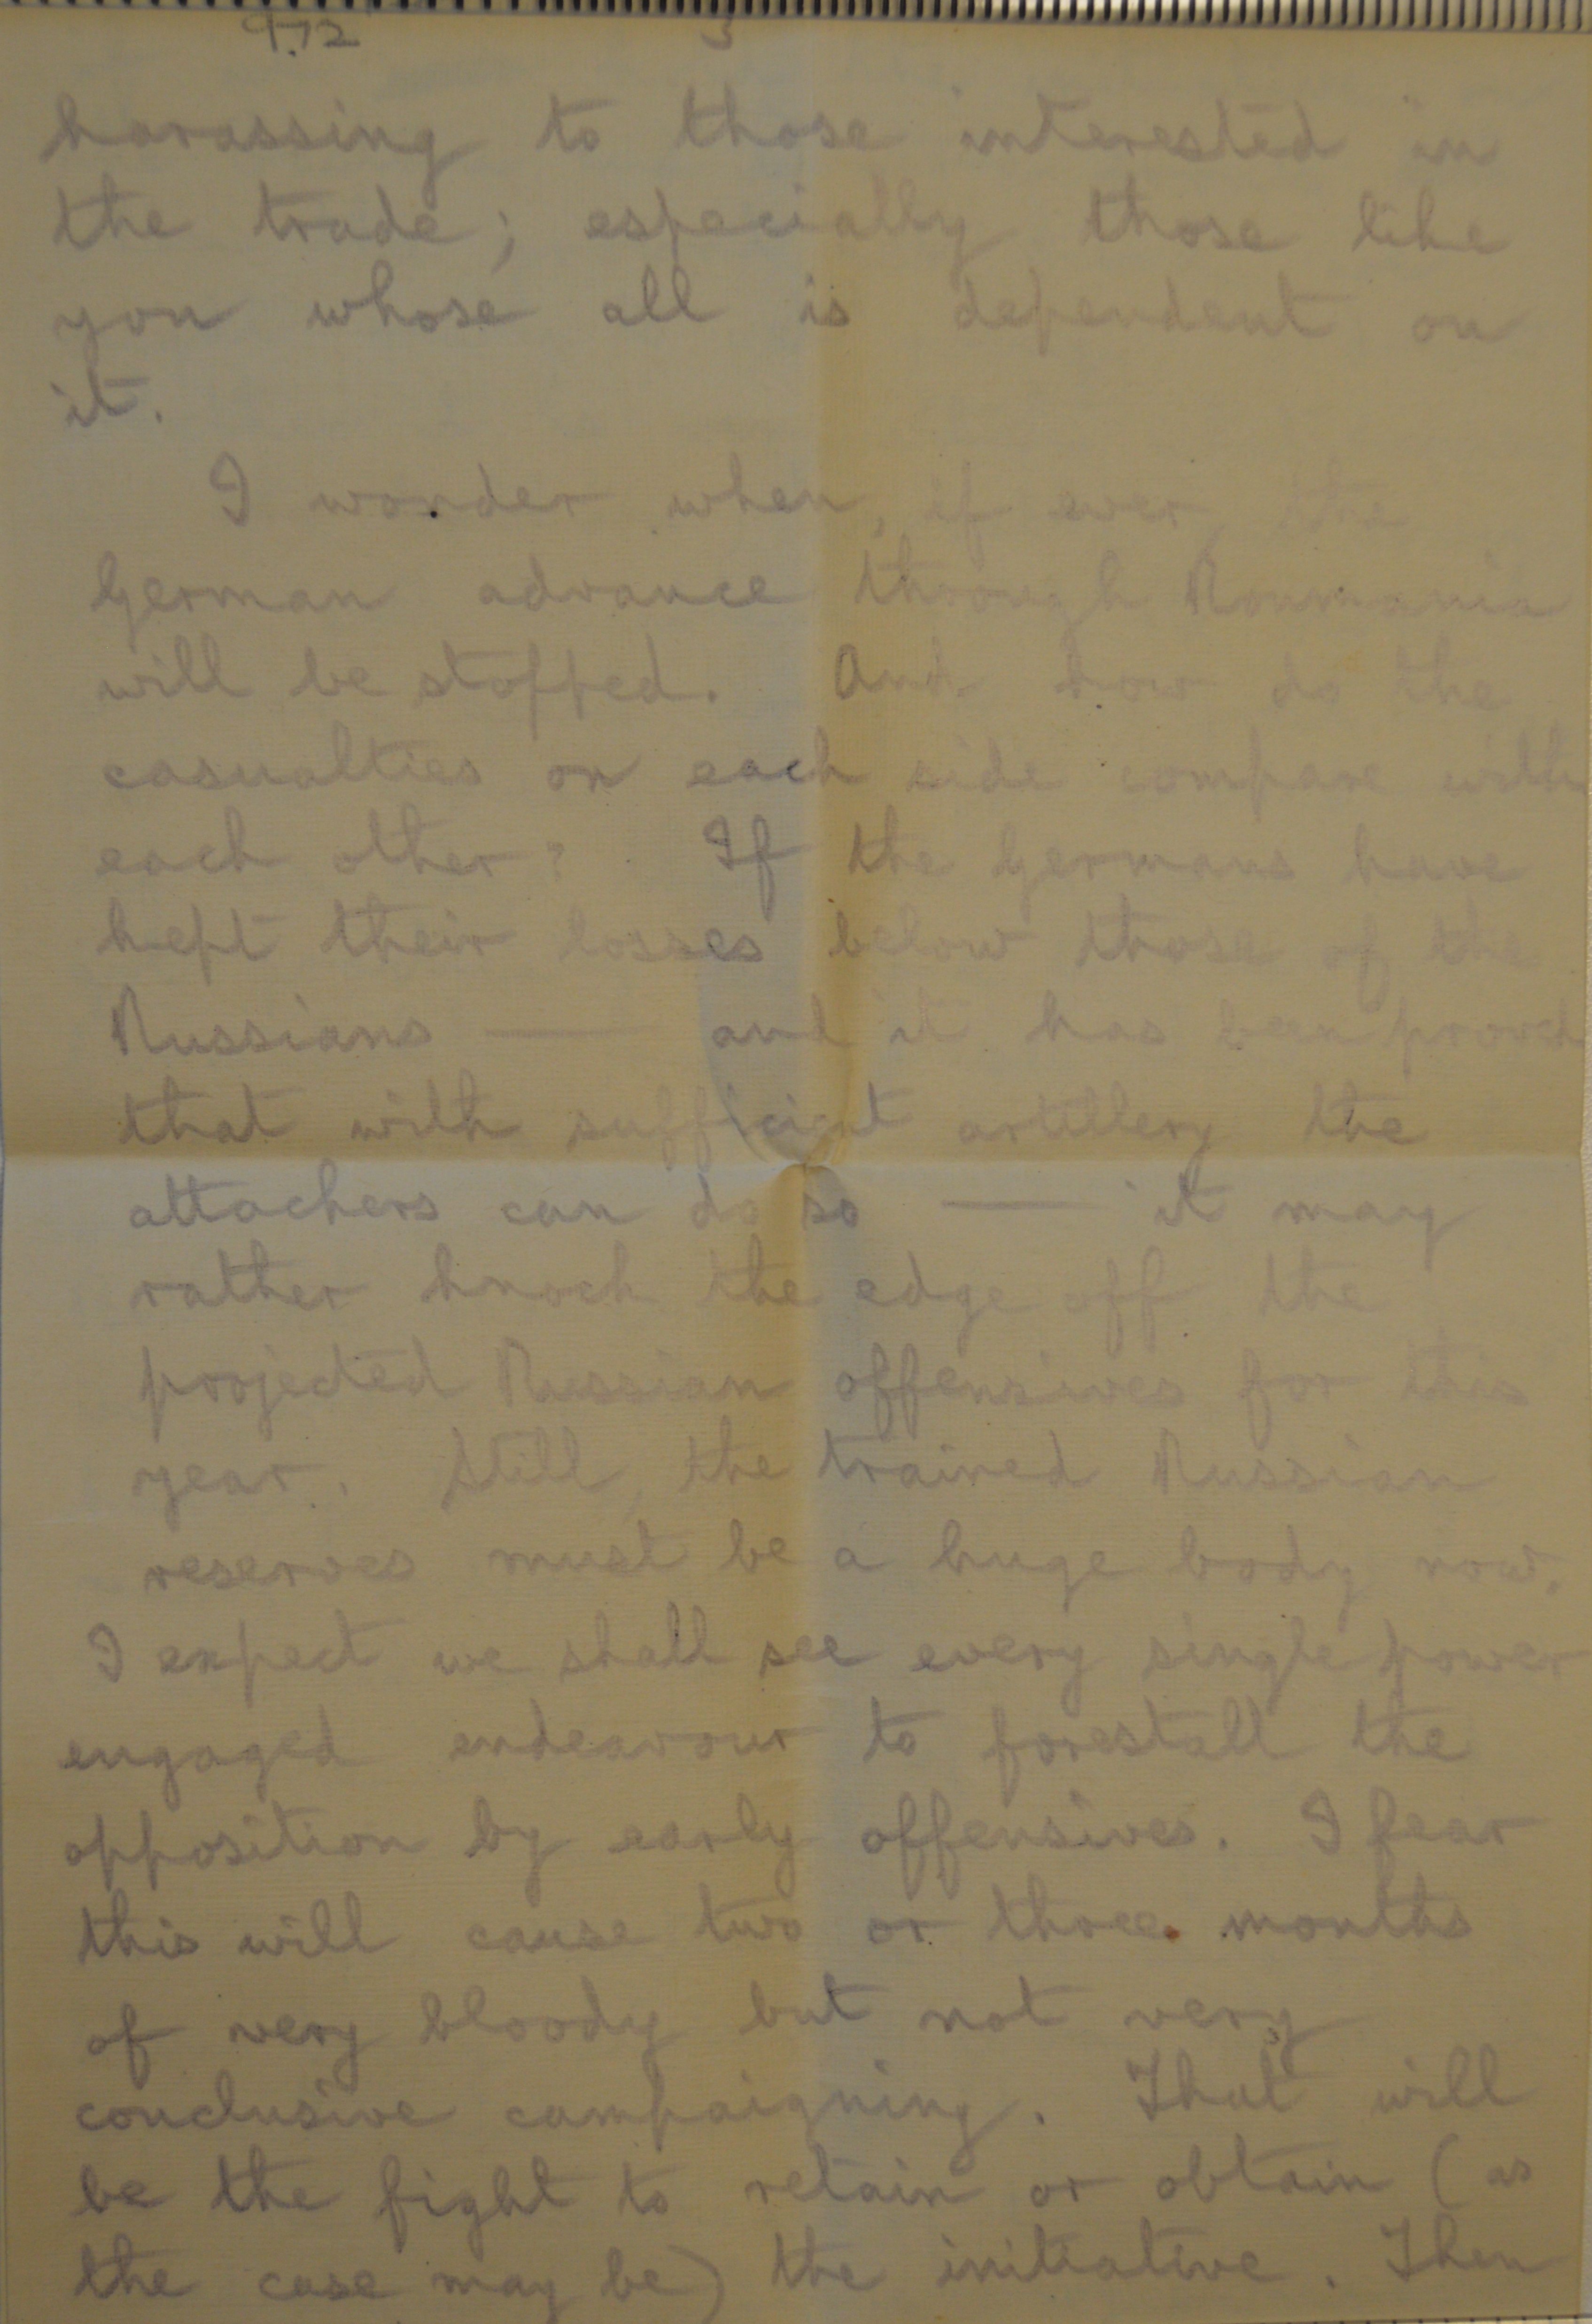 972 3
harassing to those interested in
the trade; especially those like
you whose all is dependent on
it.
I wonder when, if ever, the
German advance through Roumania
will be stopped. And how do the
casualties on each side compare with
each other? If the Germans have
kept their losses below those of the
Russians — and it has been proved
that with sufficient artillery the
attackers can do so — it may
rather knock the edge off the
projected Russian offensives for this
year. Still, the trained Russian
reserves must be a huge body now.
I expect we shall see every single power
engaged endeavour to forestall the
opposition by early offensives. I fear
this will cause two or three months
of very bloody but not very
conclusive campaigning. That will
be the fight to retain or obtain (as
the case may be) the initiative. Then